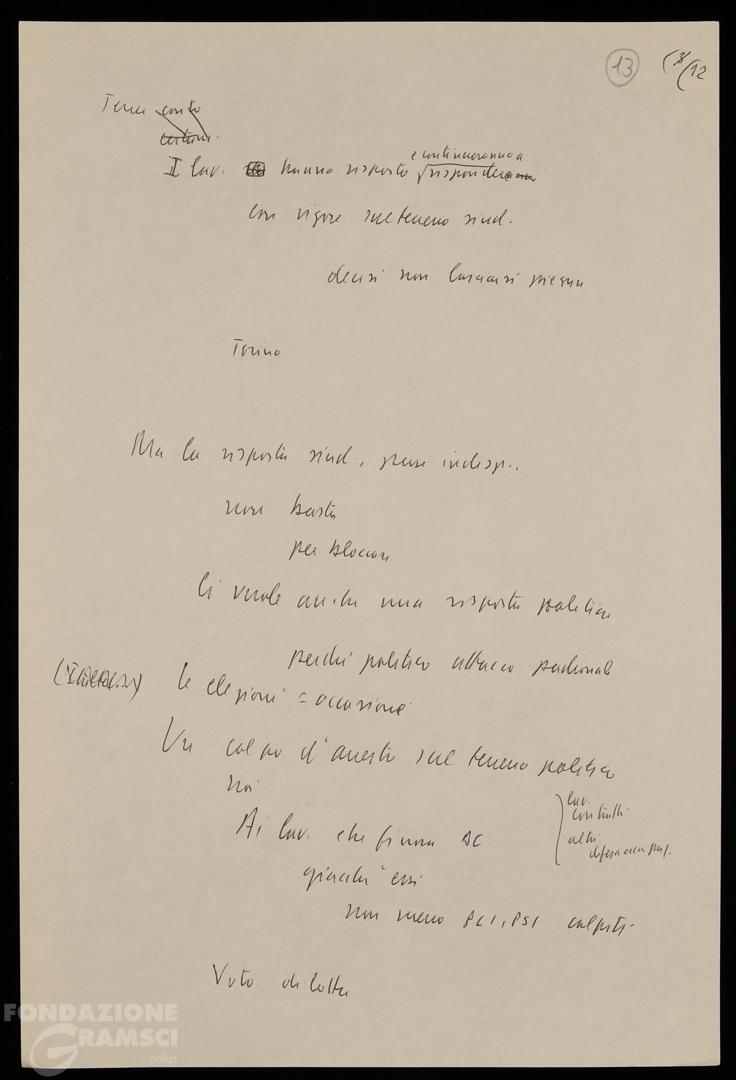 13
Tener conto
I lav. hanno risposto e continueranno a rispondere
con vigore sul terreno sind.
decisi non lasciarsi piegare
Torino
Ma la risposta sind., pure indisp.,
non basta
per bloccare
Ci vuole anche una risposta politica
perché politico attacco padronale
le elezioni = occasione
Un colpo d'arresto sul terreno politico
noi
Ai lav. che finora DC
lav.
contratti
altri
giacché essi
non meno PCI, PSI colpiti
Voto di lotta
FONDAZIONE
GRAMSCI
onlus